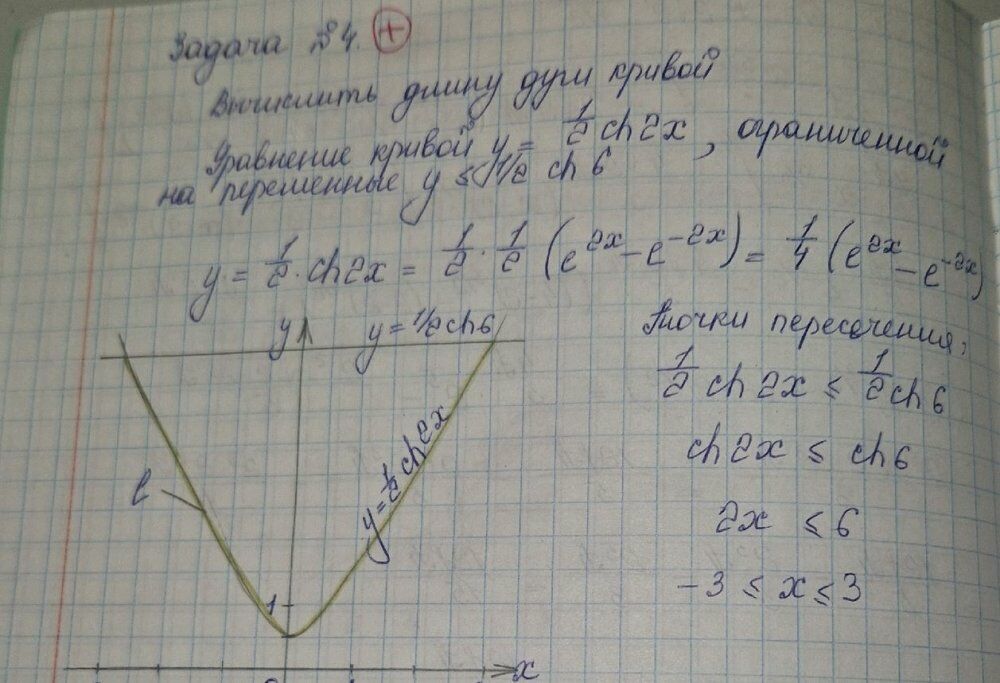 Задача №4. +
Вычислить длину дуги кривой
Уравнение кривой y = 1/2 ch 2x, ограниченной
на переменные y ≤ 1/2 ch 6
y = 1/2 · ch 2x = 1/2 · 1/2 (e^2x - e^-2x) = 1/4 (e^2x - e^-2x)
y
y = 1/2 ch 6
l
y = 1/2 ch 2x
1
x
Точки пересечения,
1/2 ch 2x ≤ 1/2 ch 6
ch 2x ≤ ch 6
2x ≤ 6
-3 ≤ x ≤ 3